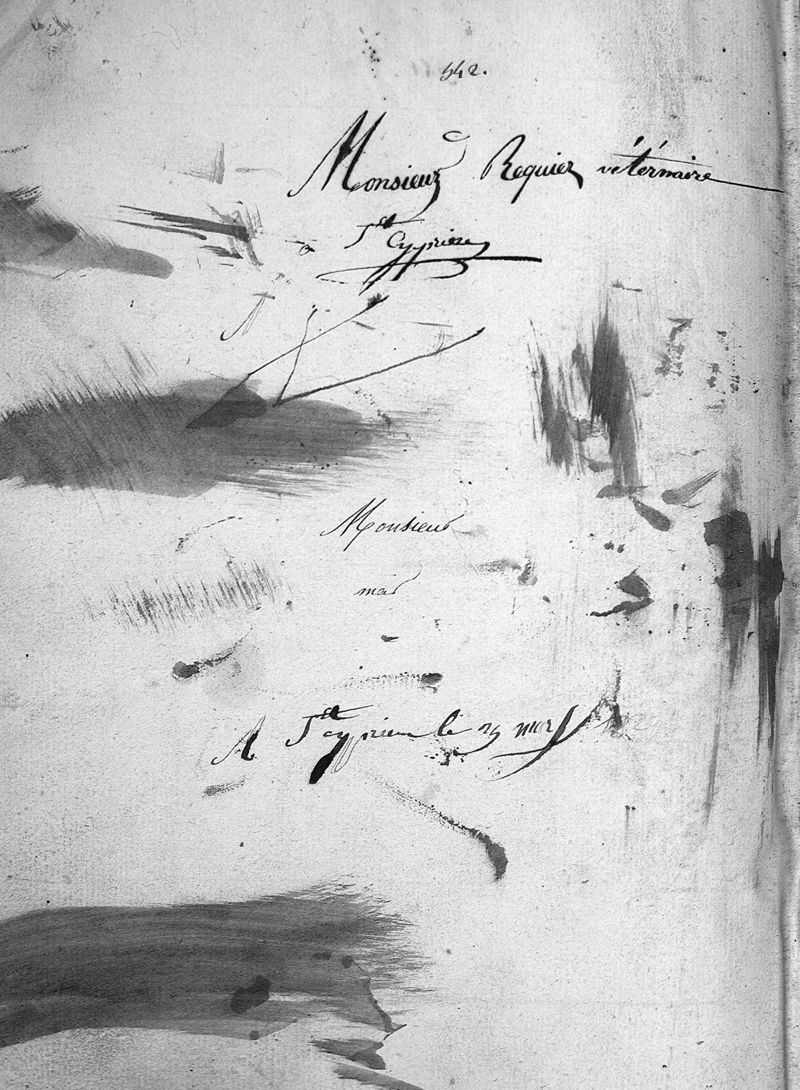 542.
Monsieur Requier véternaire
St Cyprien
A
Monsieur
mar
A St cyprien le 25 mars